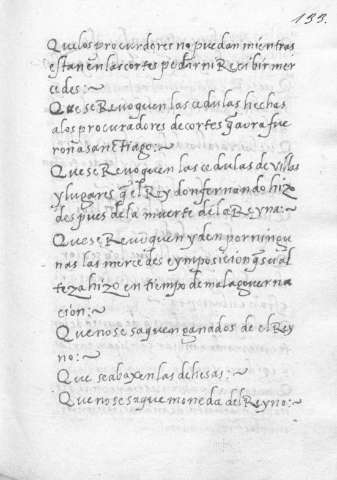 155.
Que los procuradores no puedan mientras
estan en las cortes pedir ni Recibir mer
cedes:~
Que se Revoquen las cedulas hechas
a los procuradores de cortes q̃ aora fue
ron a santiago:~
Que se Revoquen las cedulas de villas
y lugares q̃ el Rey don fernando hizo
despues de la muerte de la Reyna:~
Que se Revoquen y den por ningu
nas las mercedes e ymposicion q̃ su al
teza hizo en tiempo de mala governa
cion:~
Que no se saquen ganados de el Rey
no:~
Que se abaxen las dehesas:~
Que no se saque moneda del Reyno:~